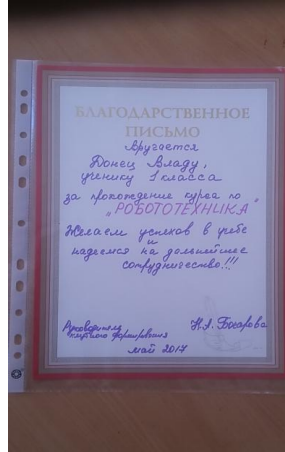 БЛАГОДАРСТВЕННОЕ
ПИСЬМО
Вручается
Донец Владу,
ученику 1 класса
за прохождение курса по
"РОБОТОТЕХНИКА"
Желаем успехов в учебе
и
надеемся на дальнейшее
сотрудничество!!!
Руководитель
формирования
Н.А.
май 2017